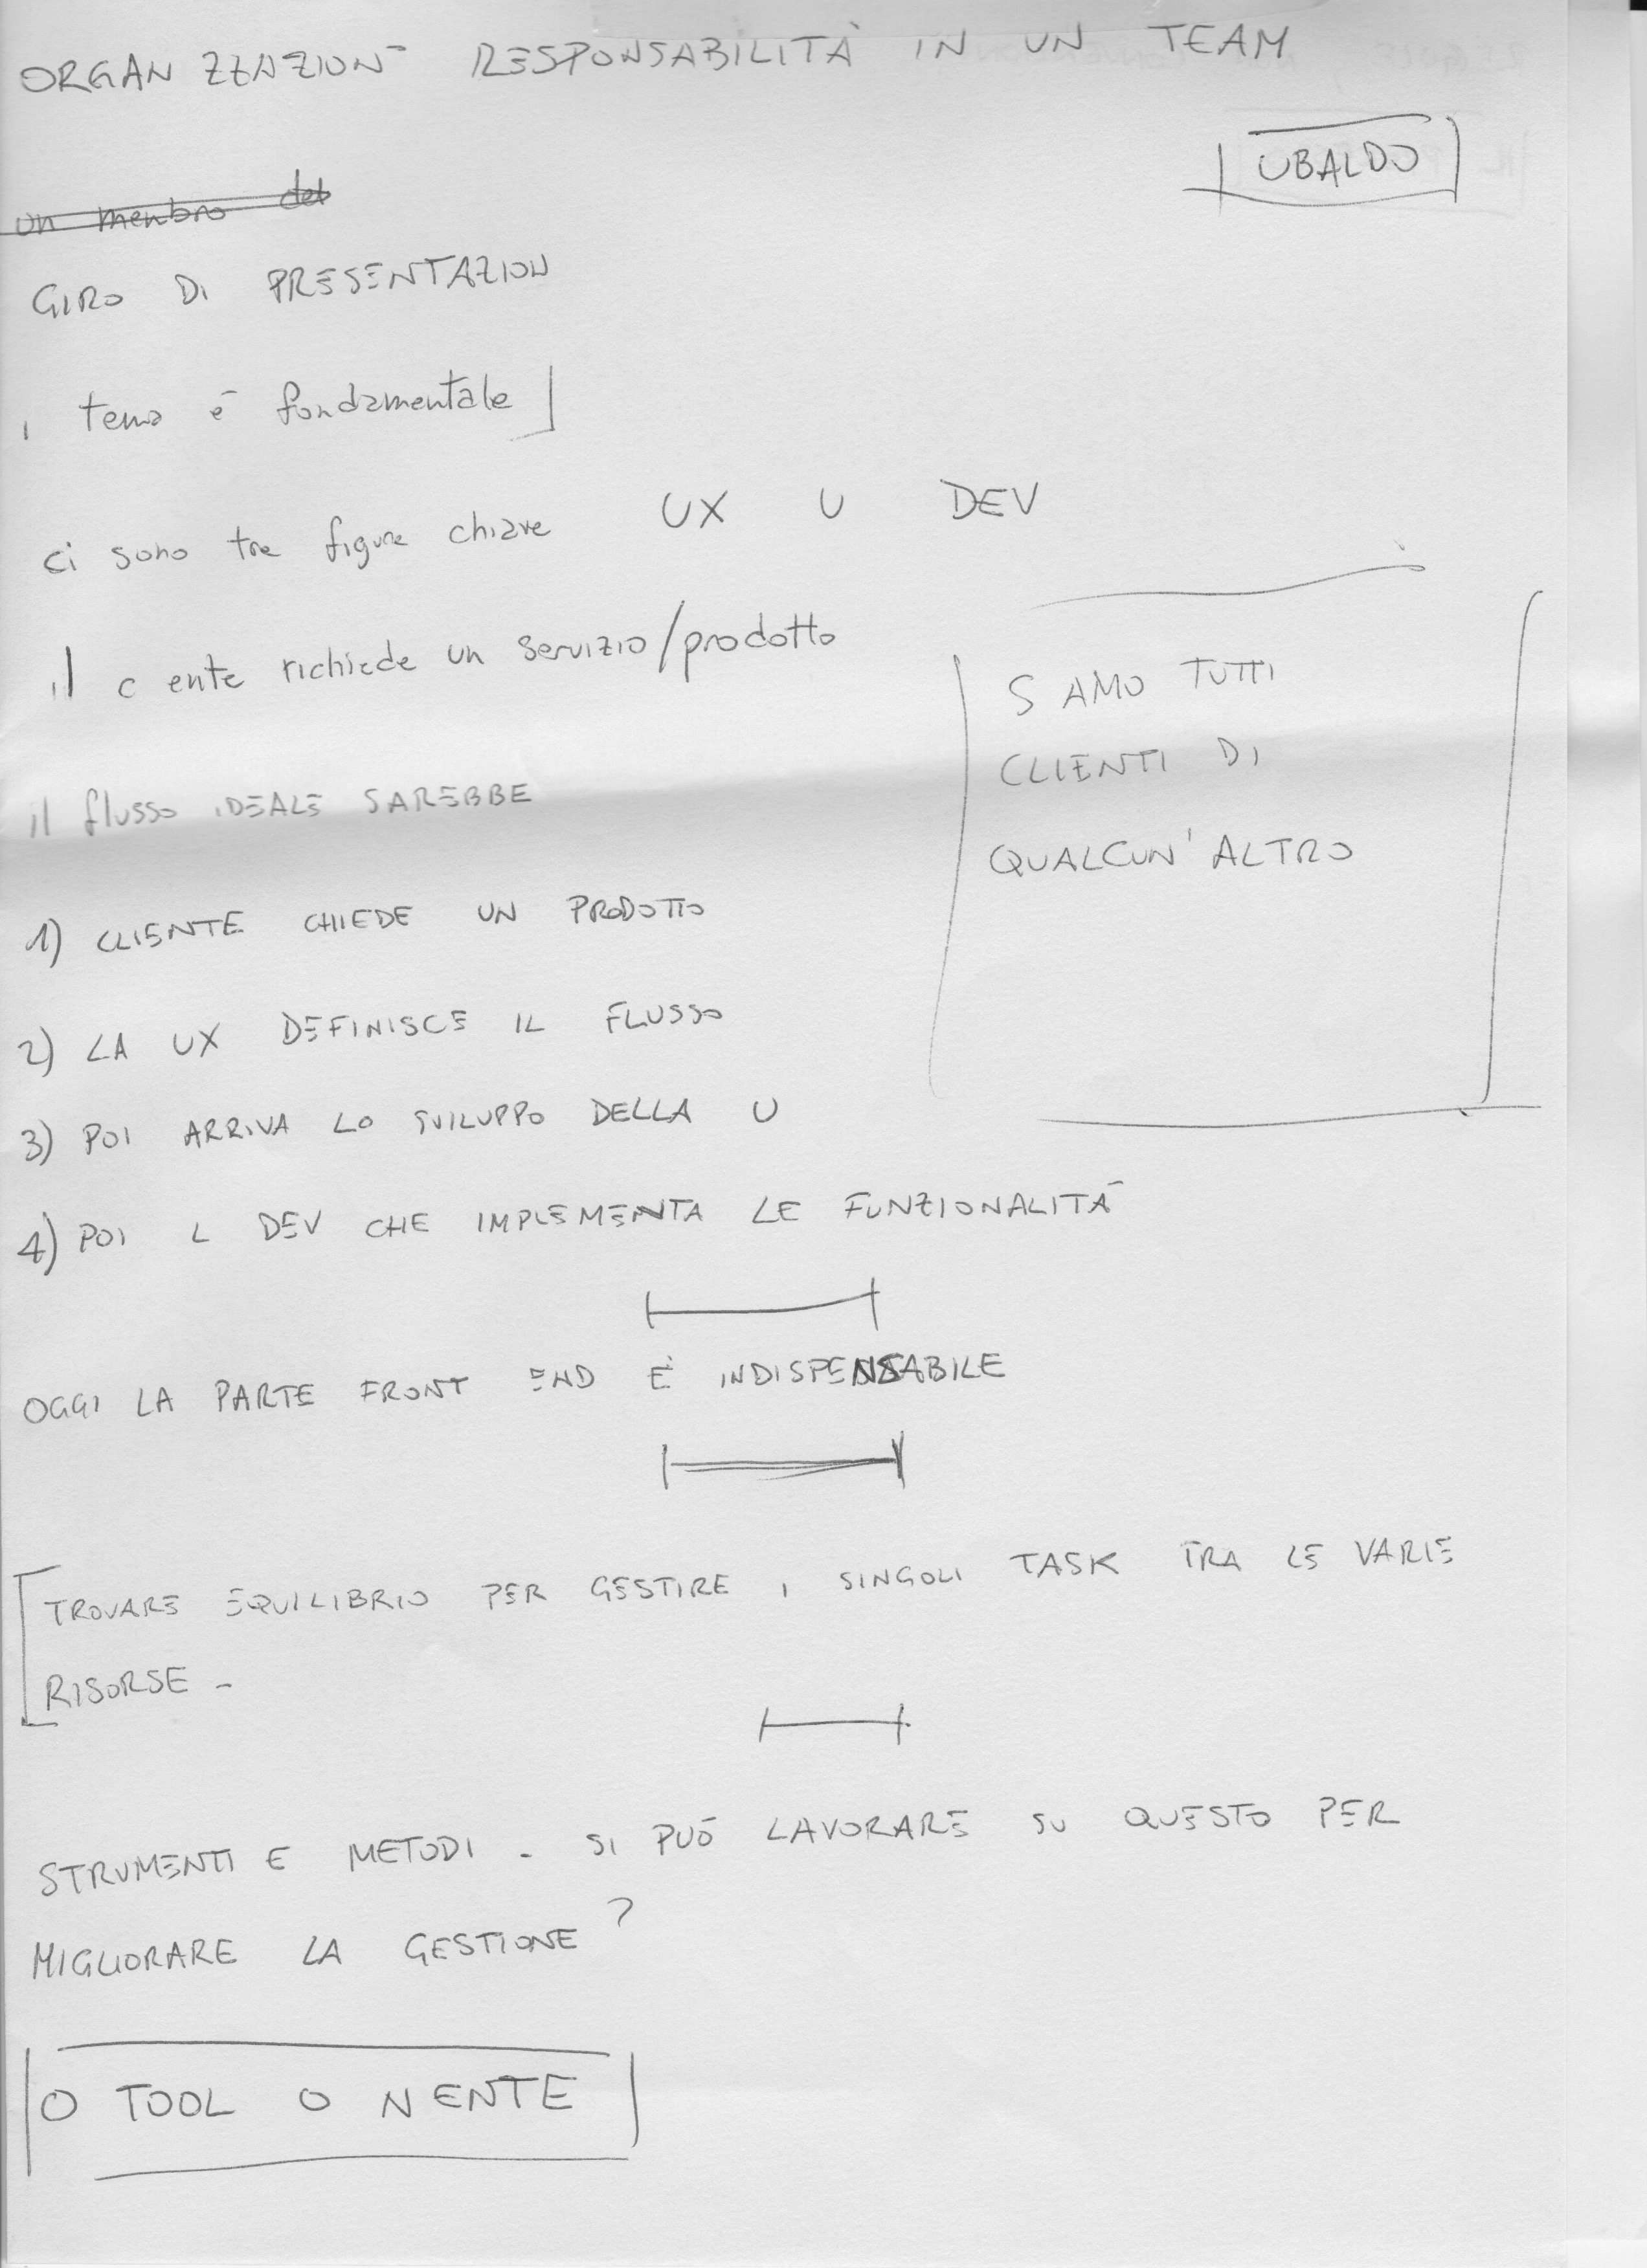 ORGAN ZZAZION RESPONSABILITÀ IN UN TEAM
UBALDO
un menbro del
GIRO DI PRESENTAZION
, tema è fondamentale
ci sono tre figure chiave UX U DEV
il c ente richiede un servizio/prodotto
S AMO TUTTI
CLIENTI DI
QUALCUN'ALTRO
il flusso IDEALE SAREBBE
1) CLIENTE CHIEDE UN PRODOTTO
2) LA UX DEFINISCE IL FLUSSO
3) POI ARRIVA LO SVILUPPO DELLA U
4) POI L DEV CHE IMPLEMENTA LE FUNZIONALITÀ
OGGI LA PARTE FRONT END È INDISPENSABILE
TROVARE EQUILIBRIO PER GESTIRE I SINGOLI TASK TRA LE VARIE
RISORSE -
STRUMENTI E METODI - SI PUÒ LAVORARE SU QUESTO PER
MIGLIORARE LA GESTIONE ?
O TOOL O NENTE